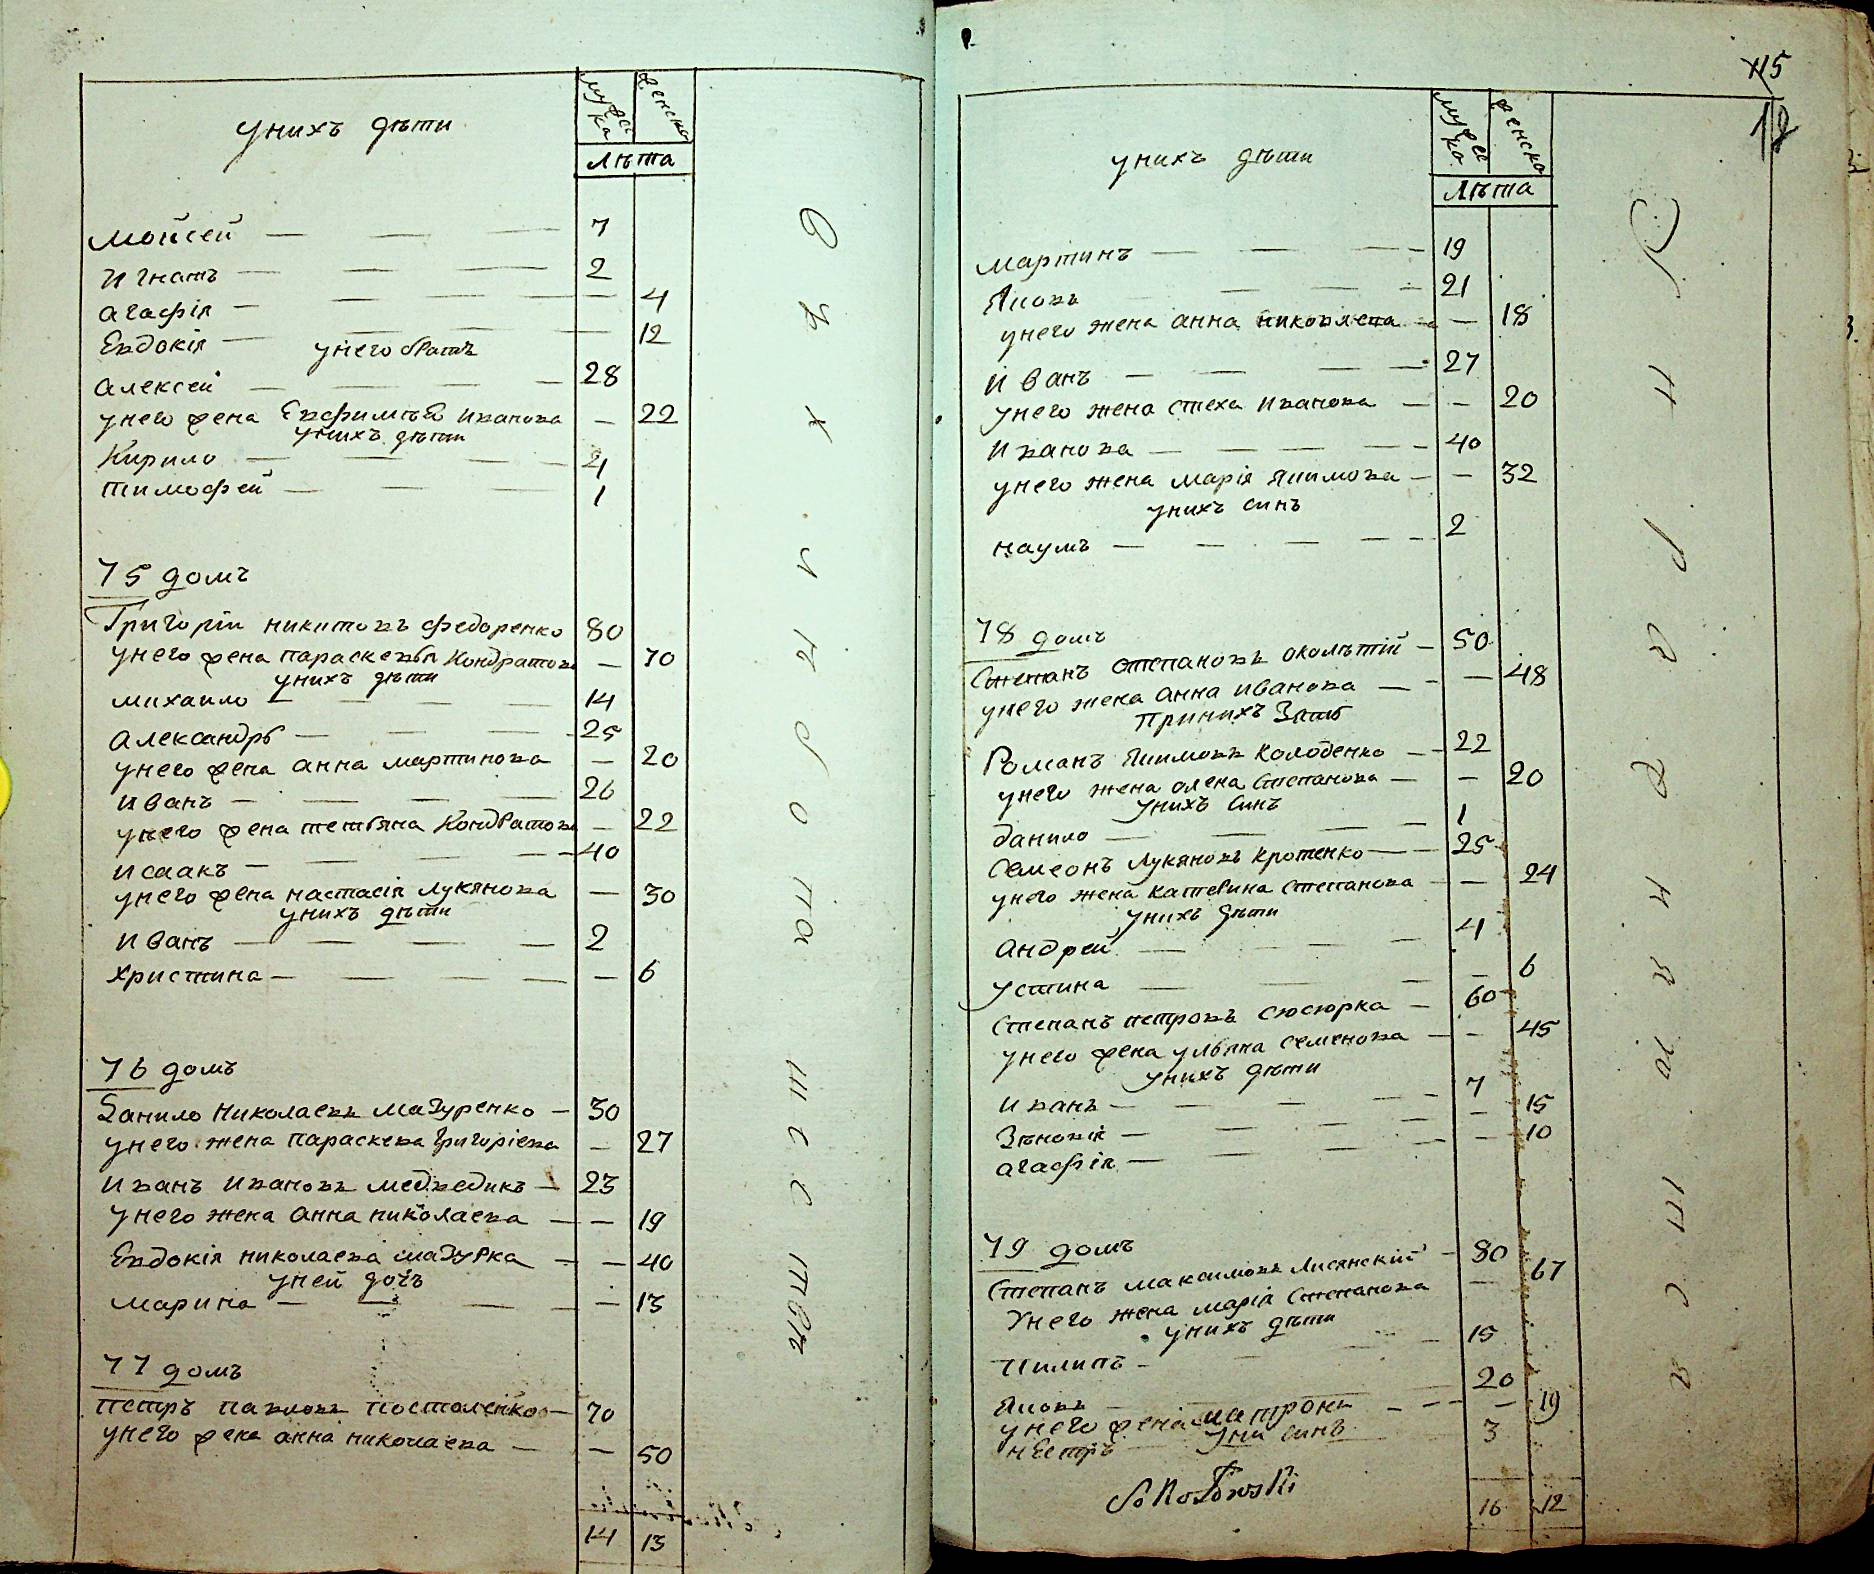 унихъ дѣти
мужеска
женска
лѣта
Мойсей — — — 7
Игнатъ — — — 2
агафія — — — — 4
Евдокія — — — — 12
унего братъ
алексей — — — 28
унего жена Евфимѣя Иванова — 22
унихъ дѣти
Кирило — — — 4
тимофей — — — 1
75 домъ
Григорій никитовъ федоренко 80
унего жена параскевья Кондратова — 70
унихъ дѣти
михаило — — — 14
Александръ — — — 25
унего жена анна мартинова — 20
иванъ — — — 26
унего жена тетьяна Кондратова — 22
исаакъ — — — 40
унего жена настасія лукянова — 30
унихъ дѣти
иванъ — — — 2
христина — — — — 6
76 домъ
Данило николаевъ мазуренко — 30
унего жена параскева григоріева — 27
иванъ ивановъ медведикъ — 23
унего жена анна николаева — — 19
Евдокія николаева мазурка — — 40
уней дочь
марина — — — — 13
77 домъ
петръ павловъ постоленко — 70
унего жена анна николаева — — 50
14 13
115
12
унихъ дѣти
мужеска
женска
лѣта
мартинъ — — — 19
Яковъ — — — 21
унего жена анна николаева — — 18
иванъ — — — 27
унего жена стеха иванова — — 20
иванова — — — 40
унего жена марія якимова — — 32
унихъ синъ
наумъ — — — 2
78 домъ
Степанъ степановъ околѣтій — 50
унего жена анна иванова — — 48
принихъ зять
Романъ якимовъ колоденко — 22
унего жена олена степанова — — 20
унихъ синъ
данило — — — 1
Семеонъ лукяновъ кротенко — 25
унего жена катерина степанова — — 24
унихъ дѣти
андрей — — — 4
устина — — — — 6
степанъ петровъ сюсюрка — 60
унего жена ульяна семенова — — 45
унихъ дѣти
иванъ — — — 7
Зѣновія — — — — 15
агафія — — — — 10
79 домъ
степанъ максимовъ лисянскій — 80
унего жена марія степанова — 67
унихъ дѣти
пилипъ — — 15
яковъ — — 20
унего жена матрона — — 19
уни синъ
нестръ — — 3
Sokołowski
16 12